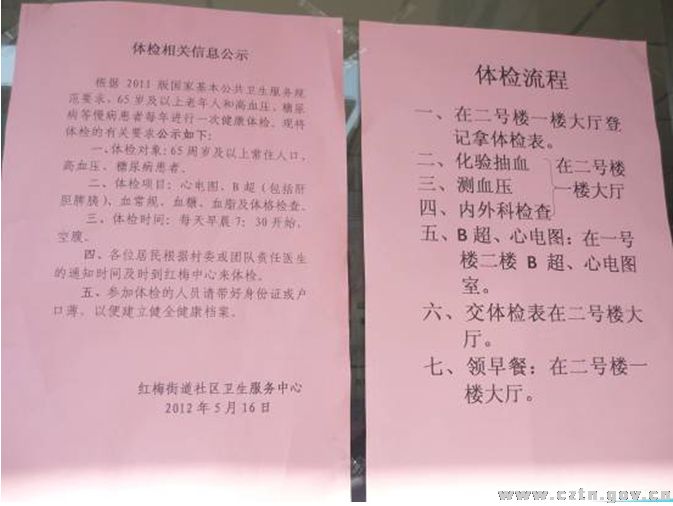 体检相关信息公示
根据 2011 版国家基本公共卫生服务规
范要求，65 岁及以上老年人和高血压、糖尿
病等慢病患者每年进行一次健康体检。现将
体检的有关要求公示如下：
一、体检对象：65 周岁及以上常住人口，
高血压、糖尿病患者。
二、体检项目：心电图、B 超（包括肝
胆脾胰）、血常规、血糖、血脂及体格检查。
三、体检时间：每天早晨 7：30 开始，
空腹。
四、各位居民根据村委或团队责任医生
的通知时间及时到红梅中心来体检。
五、参加体检的人员请带好身份证或户
口薄，以便建立健全健康档案。
红梅街道社区卫生服务中心
2012 年 5 月 16 日
体检流程
一、在二号楼一楼大厅登
记拿体检表。
二、化验抽血
三、测血压
四、内外科检查
在二号楼
一楼大厅
五、B 超、心电图：在一号
楼二楼 B 超、心电图
室。
六、交体检表在二号楼大
厅。
七、领早餐：在二号楼一
楼大厅。
www.cztn.gov.cn